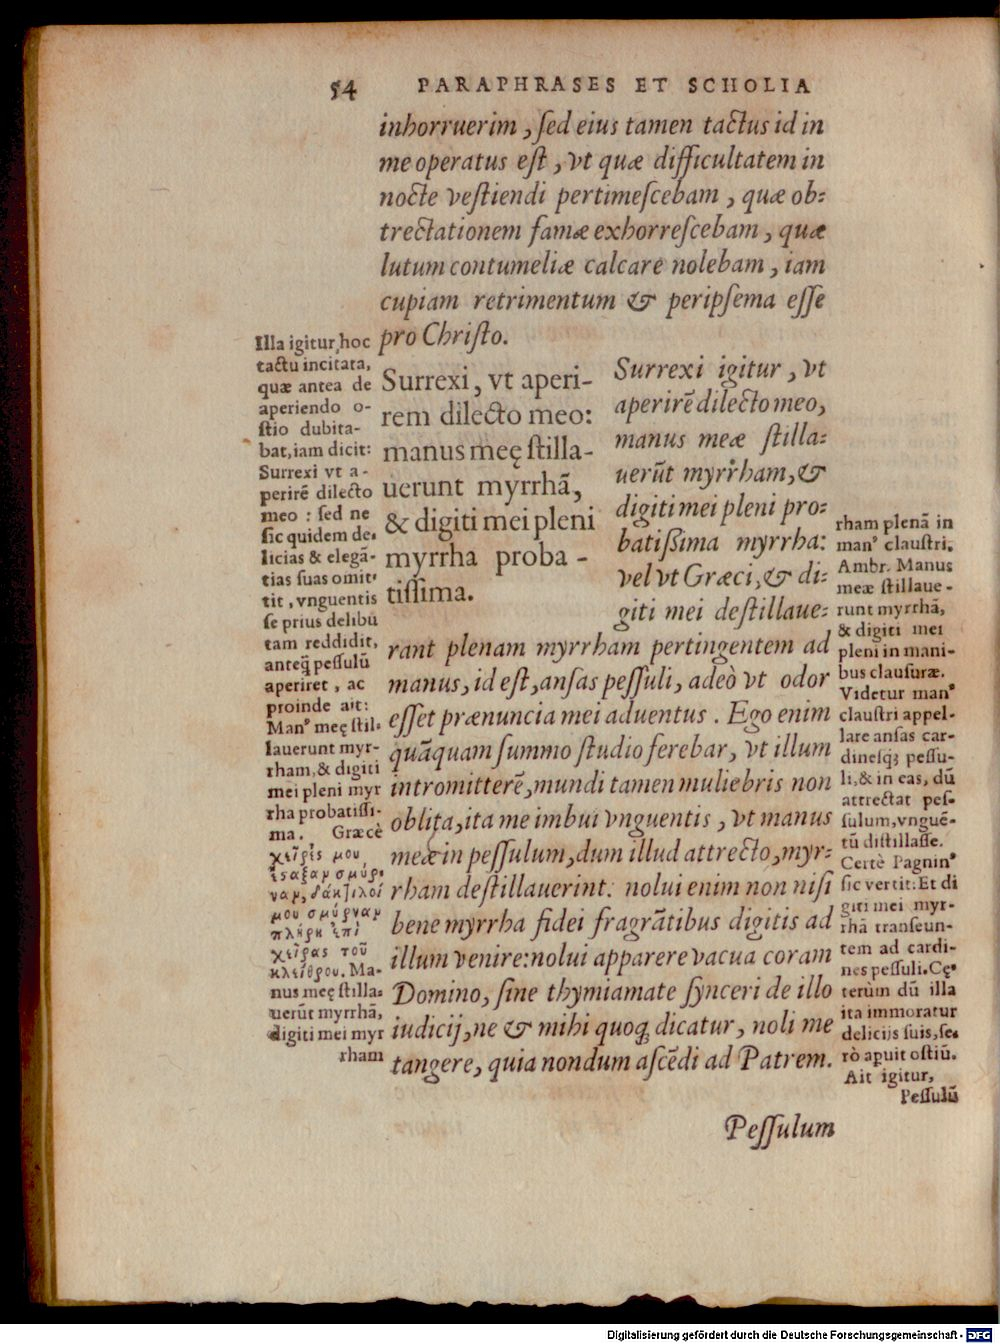 54 PARAPHRASES ET SCHOLIA
inhorruerim, sed eius tamen tactus id in
me operatus est, vt quæ difficultatem in
nocte vestiendi pertimescebam, quæ ob-
trectationem famæ exhorrescebam, quæ
lutum contumeliæ calcare nolebam, iam
cupiam retrimentum & peripsema esse
pro Christo.
Illa igitur hoc
tactu incitata,
quæ antea de
aperiendo o-
stio dubita-
bat, iam dicit:
Surrexi vt a-
perirē dilecto
meo: sed ne
sic quidem de-
licias & elegā-
tias suas omit-
tit, vnguentis
se prius delibu
tam reddidit,
anteq̃ pessulū
aperiret, ac
proinde ait:
Man⁹ meę stil-
lauerunt myr-
rham, & digiti
mei pleni myr
rha probatissi-
ma. Græcè
χεῖρές μου
ἔσαξαν σμύρ-
ναν, δάκτυλοί
μου σμύρναν
πλήρη ἐπὶ
χεῖρας τοῦ
κλείθρου. Ma-
nus meę stilla-
uerūt myrrhā,
digiti mei myr
rham
Surrexi, vt aperi-
rem dilecto meo:
manus meę stilla-
uerunt myrrhā,
& digiti mei pleni
myrrha proba-
tissima.
Surrexi igitur, vt
aperirē dilecto meo,
manus meæ stilla-
uerūt myrrham, &
digiti mei pleni pro-
batißima myrrha:
vel vt Græci, & di-
giti mei destillaue-
rant plenam myrrham pertingentem ad
manus, id est, ansas pessuli, adeò vt odor
esset prænuncia mei aduentus. Ego enim
quāquam summo studio ferebar, vt illum
intromitterē, mundi tamen muliebris non
oblita, ita me imbui vnguentis, vt manus
meæ in pessulum, dum illud attrecto, myr-
rham destillauerint: nolui enim non nisi
bene myrrha fidei fragrātibus digitis ad
illum venire: nolui apparere vacua coram
Domino, sine thymiamate synceri de illo
iudicij, ne & mihi quoq; dicatur, noli me
tangere, quia nondum ascēdi ad Patrem.
Pessulum
rham plenā in
man⁹ claustri.
Ambr. Manus
meæ stillaue-
runt myrrhā,
& digiti mei
pleni in mani-
bus clausuræ.
Videtur man⁹
claustri appel-
lare ansas car-
dinesq; pessu-
li, & in eas, dū
attrectat pes-
sulum, vnguē-
tū distillasse.
Certè Pagnin⁹
sic vertit: Et di
giti mei myr-
rhā transeun-
tem ad cardi-
nes pessuli. Cę-
terùm dū illa
ita immoratur
delicijs suis, se-
rò apuit ostiū.
Ait igitur,
Pessulū
Digitalisierung gefördert durch die Deutsche Forschungsgemeinschaft - DFG